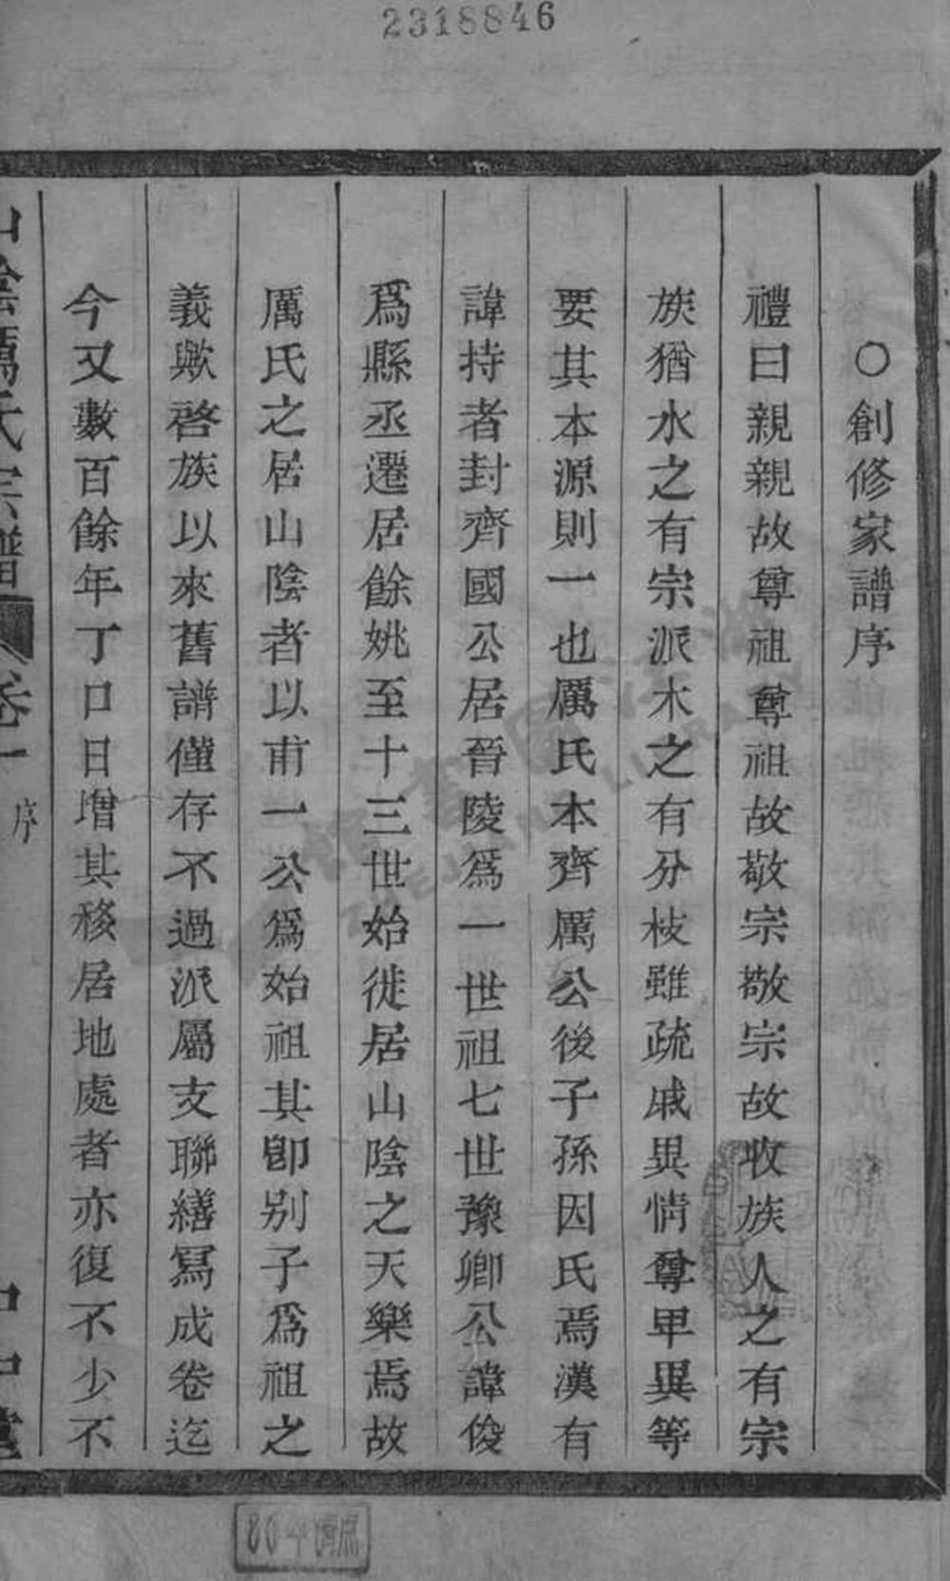 2318846
○創修家譜序
禮曰親親故尊祖尊祖故敬宗敬宗故收族人之有宗
族猶水之有宗派木之有分枝雖疏戚異情尊卑異等
要其本源則一也厲氏本齊厲公後子孫因氏焉漢有
諱持者封齊國公居晉陵爲一世祖七世豫卿公諱俊
爲縣丞遷居餘姚至十三世始徙居山陰之天樂焉故
厲氏之居山陰者以甫一公爲始祖其卽别子爲祖之
義歟啓族以來舊譜僅存不過派屬支聯繕寫成卷迄
今又數百餘年丁口日增其移居地處者亦復不少不
山陰厲氏宗譜 卷一 序